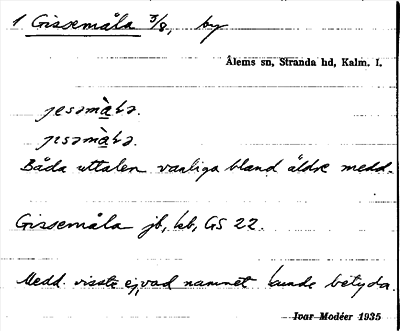 1 Gissemåla 3/8, by
Ålems sn, Stranda hd, Kalm. l.
jesəmàla.
jɪsəmàla.
Båda uttalen vanliga bland äldre medd.
Gissemåla jb, kb, GS 22.
Medd. visste ej, vad namnet kunde betyda.
Ivar Modéer 1935